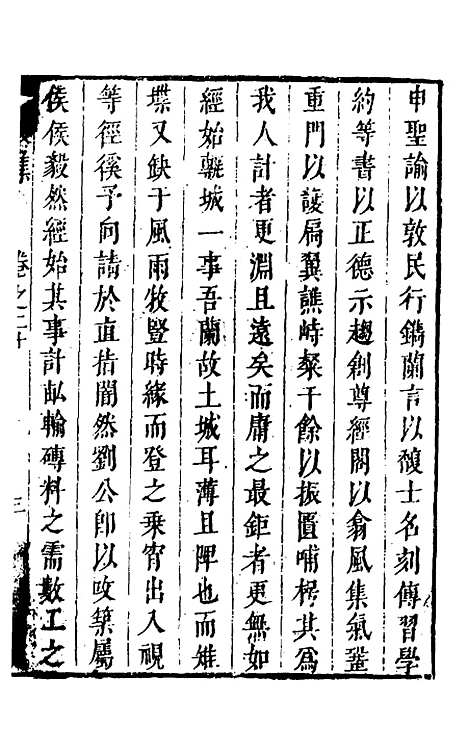 申聖諭以敦民行鐫蘭言以穀士名刻傳習學
約等書以正德示趨創尊經閣以翕風集氣鞏
重門以護扃翼譙峙粲干餘以振匱哺桴其為
我人計者更淵且遠矣而庸之最鉅者更無如
經始甃城一事吾蘭故土城耳薄且陴也而雉
堞又缺于風雨牧豎時緣而登之乘宵出入視
等徑徯予向請於直指闇然劉公即以改築屬
侯侯毅然經始其事計畝輸磚料之需數工之
卷之二十
三